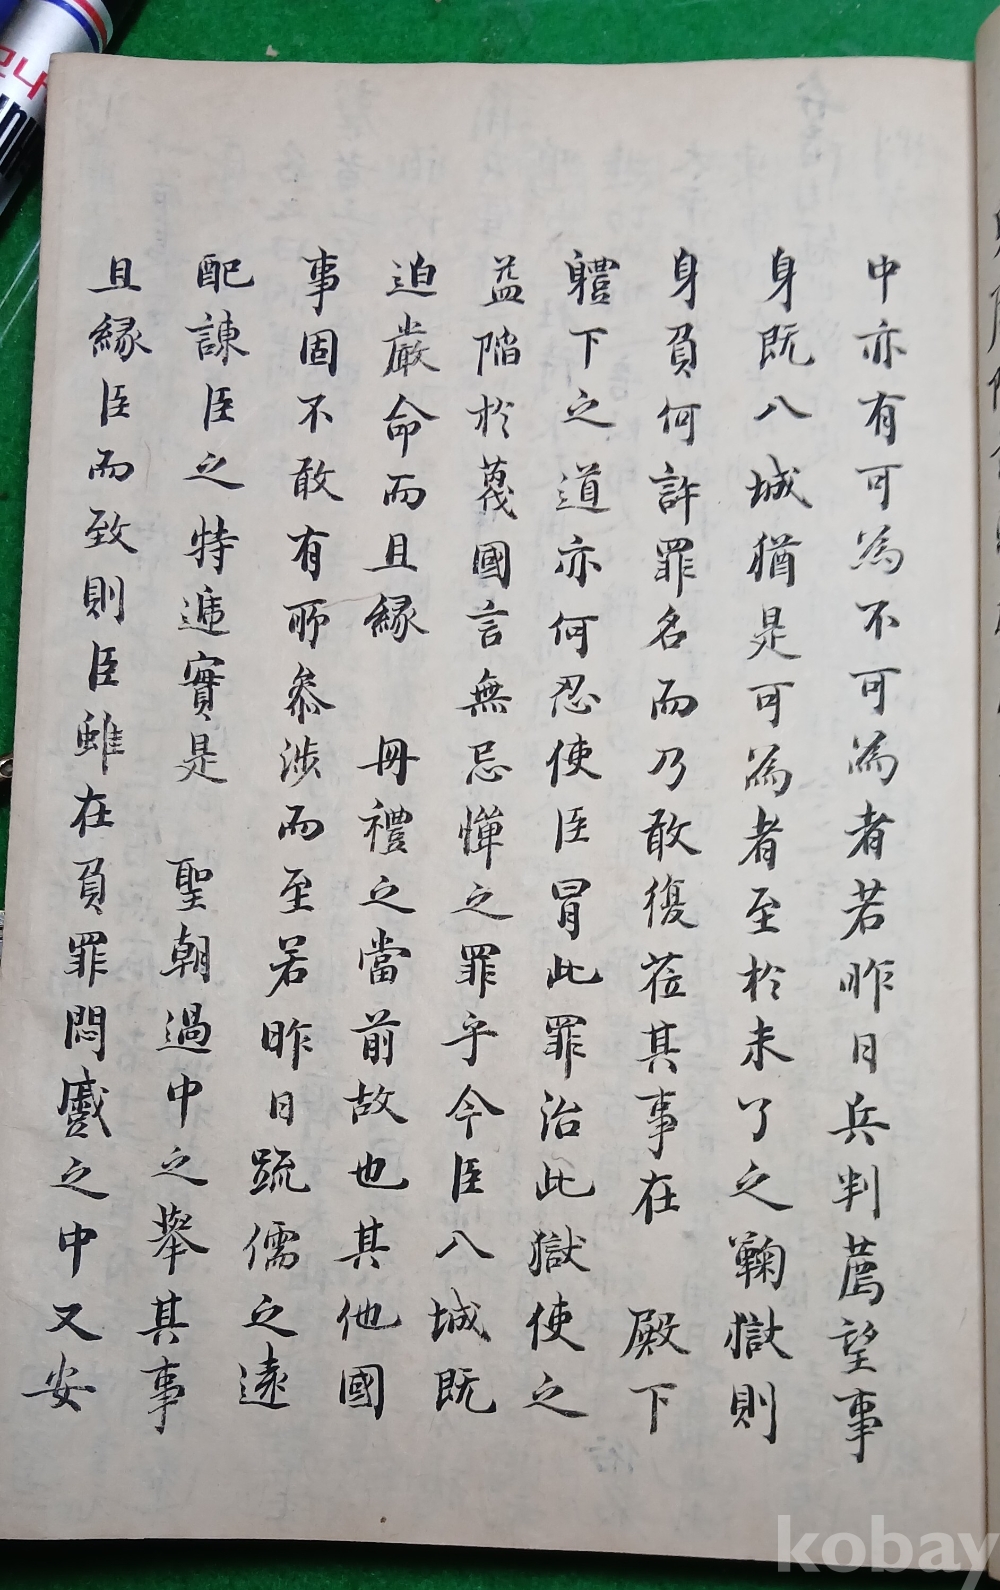 中亦有可為不可為者若昨日兵判薦望事
身既入城猶是可為者至於未了之鞠獄則
身負何許罪名而乃敢復莅其事在 殿下
軆下之道亦何忍使臣冒此罪治此獄使之
益陷於蔑國言無忌憚之罪乎今臣入城既
迫嚴命而且緣 冊禮之當前故也其他國
事固不敢有所叅涉而至若昨日䟽儒之遠
配諫臣之特遞實是 聖朝過中之擧其事
且緣臣而致則臣雖在負罪悶蹙之中又安
모나
kobay